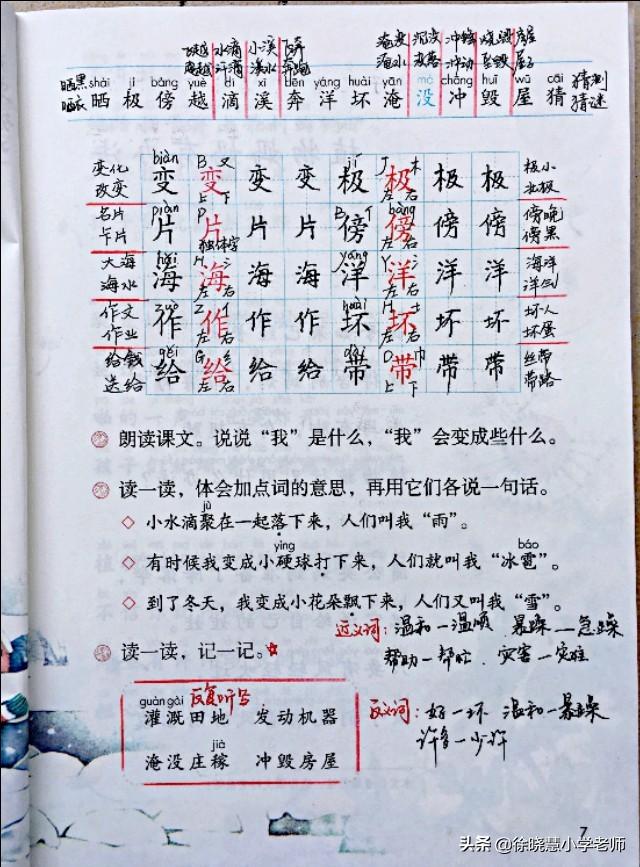 飞越 水滴 小溪 飞奔 淹没 沉没 冲锋 烧毁 房屋
汗滴 溪水 奔跑 淹水 没落 冲动 坠毁 屋子
晒黑 shài jí bàng yuè dī xī bēn yáng huài yān mò chōng huǐ wū cāi 猜测
晒衣 晒 极 傍 越 滴 溪 奔 洋 坏 淹 没 冲 毁 屋 猜 猜谜
变化 biàn B 又 jí J 木 极小
改变 变 变 变 变 极 极 极 极 北极
上 下 左 右
名片 piàn P bàng B 亻 傍晚
卡片 片 片 片 片 傍 傍 傍 傍 傍黑
独体字 左 右
大海 hǎi H 氵 yáng Y 氵 海洋
海水 海 海 海 海 洋 洋 洋 洋
左 右 左 右
作文 zuò Z 亻 huài H 土 坏人
作业 作 作 作 作 坏 坏 坏 坏 坏蛋
左 右 左 右
给钱 gěi G 纟 dài D 巾 丝带
送给 给 给 给 给 带 带 带 带 带路
左 右 上 下
朗读课文。说说“我”是什么，“我”会变成些什么。
读一读，体会加点词的意思，再用它们各说一句话。
jù
◇ 小水滴聚在一起落下来，人们叫我“雨”。
yìng báo
◇ 有时候我变成小硬球打下来，人们就叫我“冰雹”。
◇ 到了冬天，我变成小花朵飘下来，人们又叫我“雪”。
近义词：温和—温顺、暴躁—急躁
帮助—帮忙、灾害—灾难
读一读，记一记。
guàn gài 反复听写
灌溉田地 发动机器
jià
淹没庄稼 冲毁房屋
反义词：好—坏 温和—暴躁
许多—少许
7
头条 @徐晓慧小学老师